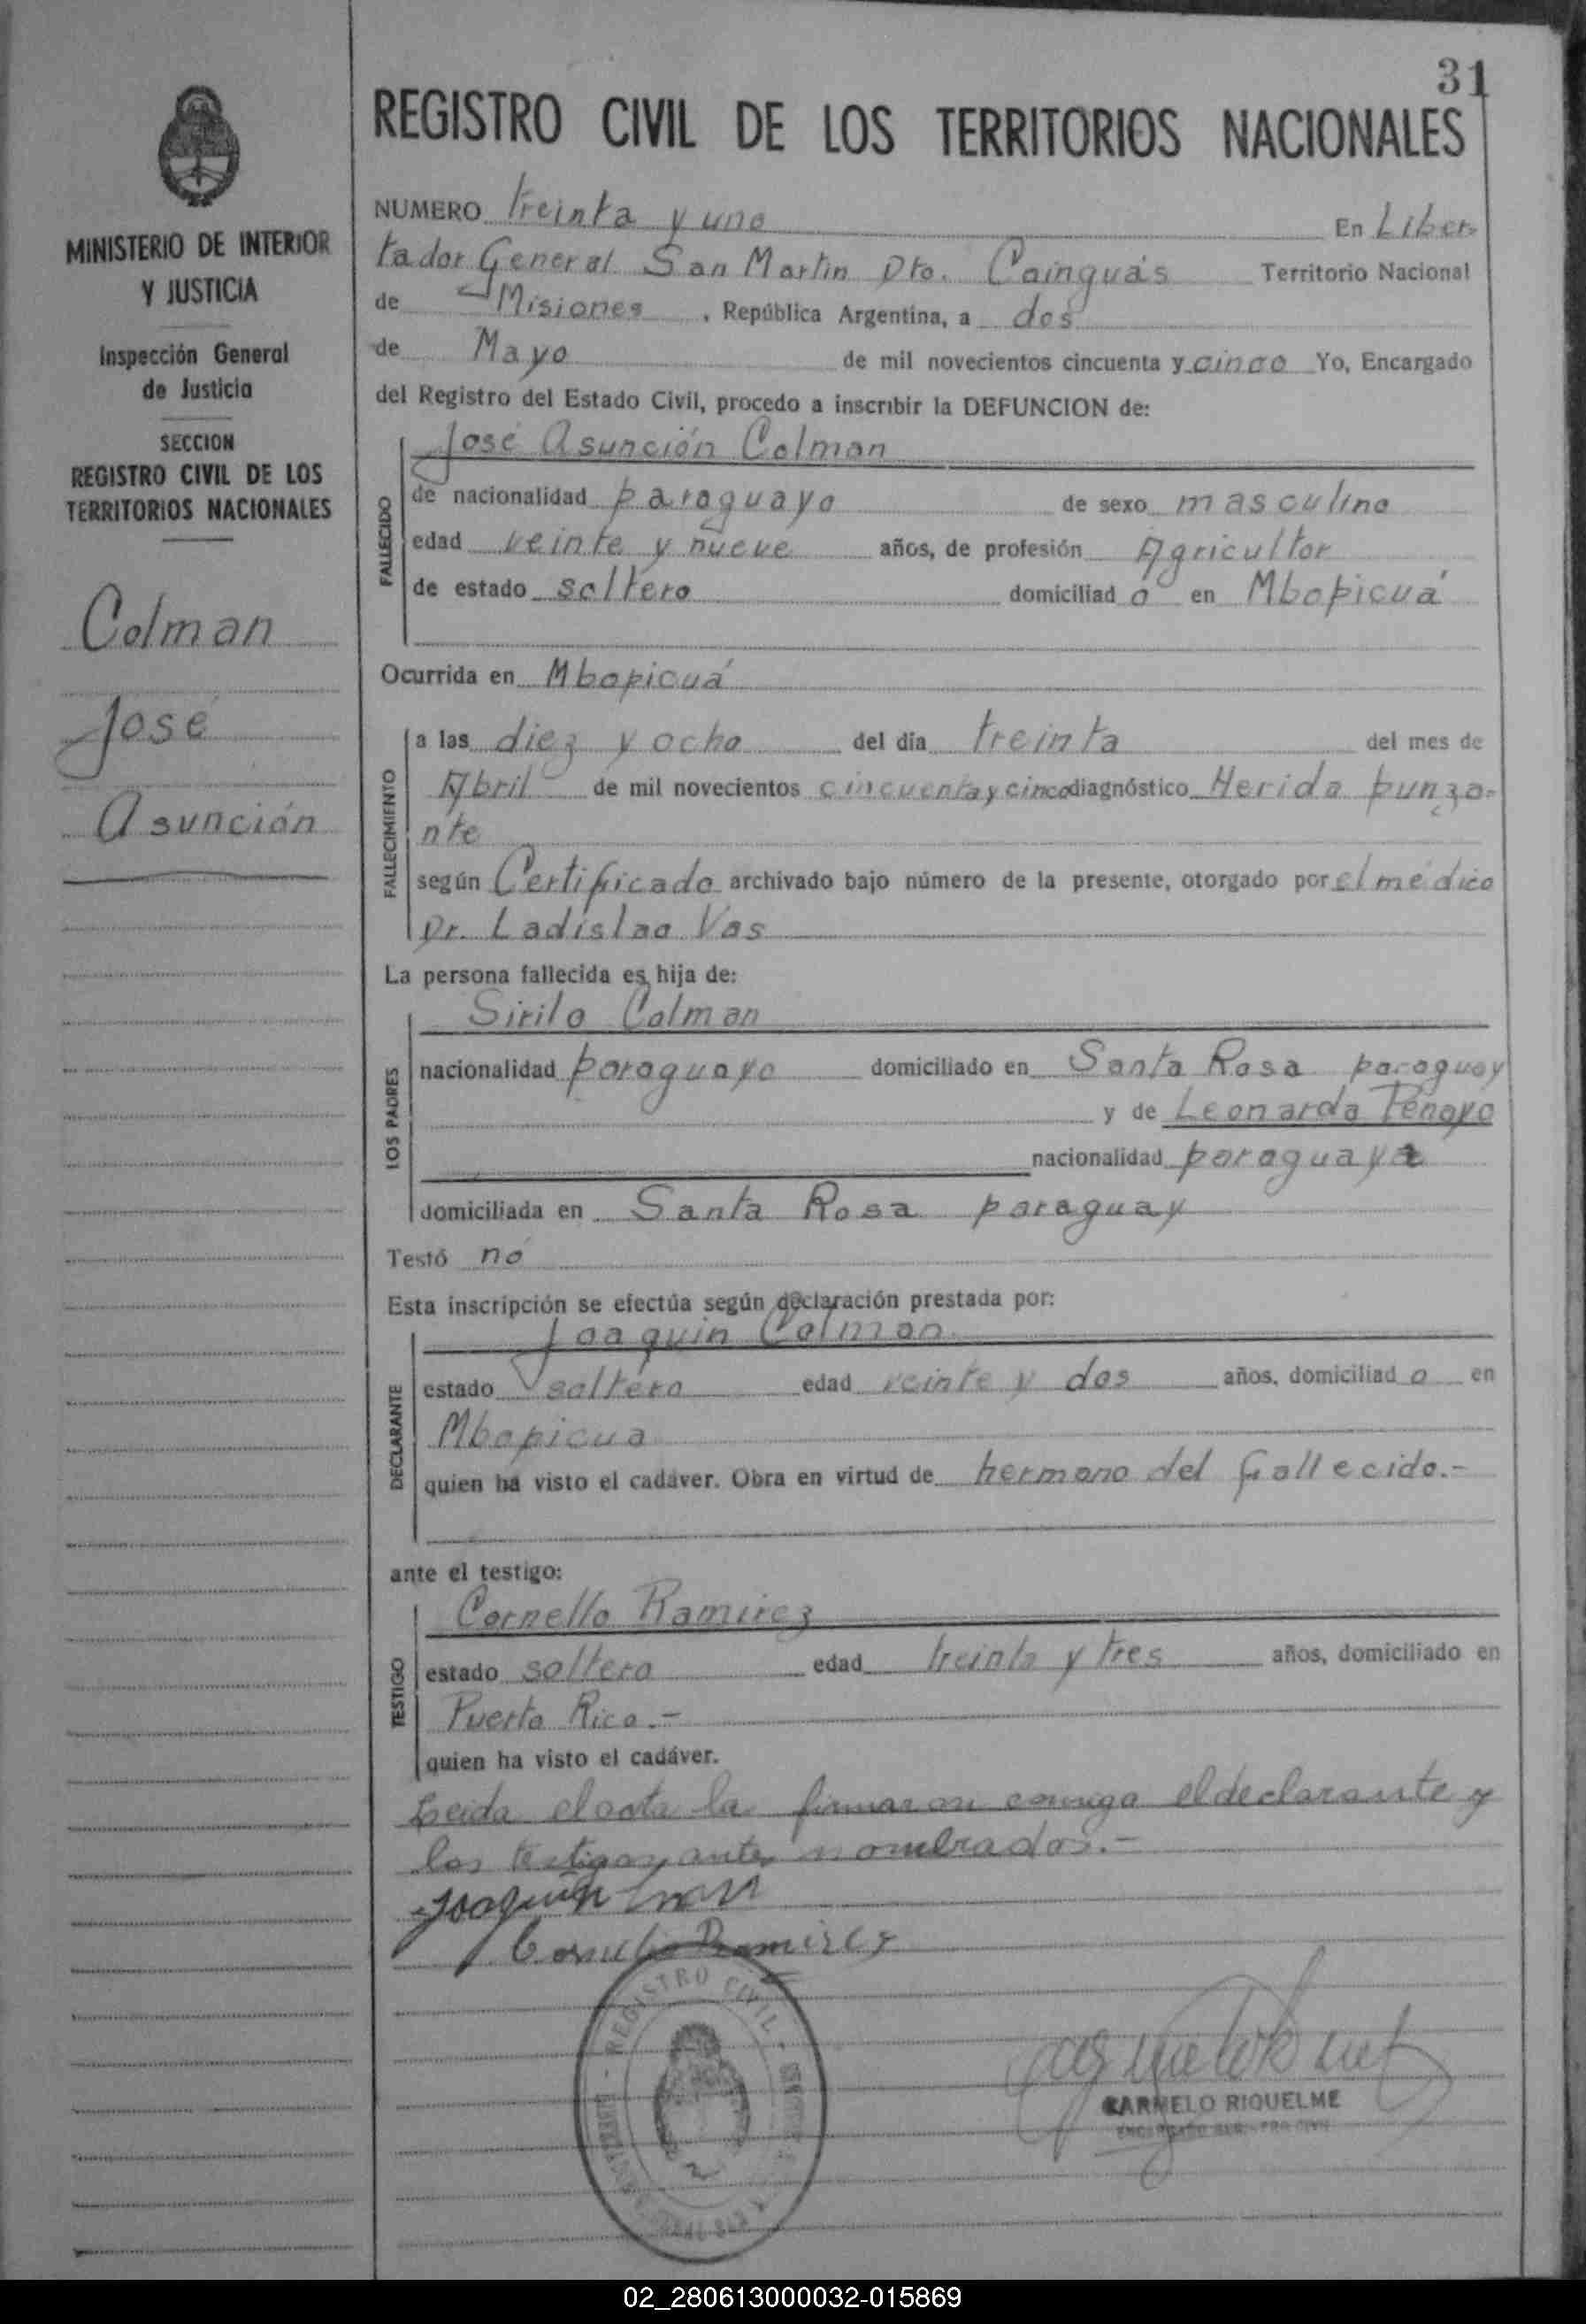 31
REGISTRO CIVIL DE LOS TERRITORIOS NACIONALES
MINISTERIO DE INTERIOR
Y JUSTICIA
Inspección General
de Justicia
SECCION
REGISTRO CIVIL DE LOS
TERRITORIOS NACIONALES
Colman
José
Asunción
NUMERO treinta y uno En Liber-
tador General San Martín Dto. Cainguás Territorio Nacional
de Misiones, República Argentina, a dos
de Mayo de mil novecientos cincuenta y cinco Yo, Encargado
del Registro del Estado Civil, procedo a inscribir la DEFUNCION de:
José Asunción Colman
FALLECIDO
de nacionalidad paraguayo de sexo masculino
edad veinte y nueve años, de profesión Agricultor
de estado soltero domiciliad o en Mbopicuá
Ocurrida en Mbopicuá
FALLECIMIENTO
a las diez y ocho del día treinta del mes de
Abril de mil novecientos cincuenta y cinco diagnóstico Herida punza-
nte
según Certificado archivado bajo número de la presente, otorgado por el médico
Dr. Ladislao Vas
La persona fallecida es hija de:
Sirilo Colman
LOS PADRES
nacionalidad paraguayo domiciliado en Santa Rosa paraguay
y de Leonarda Penayo
nacionalidad paraguaya
domiciliada en Santa Rosa paraguay
Testó no
Esta inscripción se efectúa según declaración prestada por:
Joaquin Colman
DECLARANTE
estado soltero edad veinte y dos años, domiciliad o en
Mbopicua
quien ha visto el cadáver. Obra en virtud de hermano del fallecido.-
ante el testigo:
Cornello Ramirez
TESTIGO
estado soltero edad treinta y tres años, domiciliado en
Puerto Rico.-
quien ha visto el cadáver.
Leida el acta la firmaron conmigo el declarante y
los testigos antes nombrados.-
Joaquin
Cornelio Ramirez
REGISTRO CIVIL
CARMELO RIQUELME
02_280613000032-015869